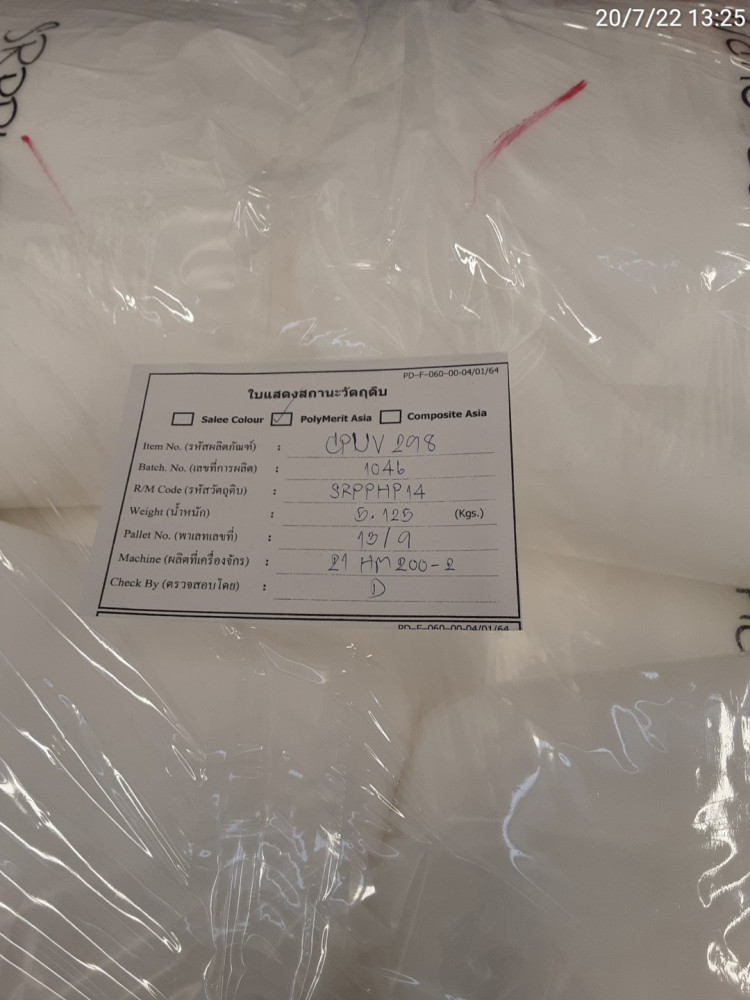 20/7/22 13:25
SRPP
PD-F-060-00-04/01/64
ใบแสดงสถานะวัตถุดิบ
Salee Colour PolyMerit Asia Composite Asia
Item No. (รหัสผลิตภัณฑ์) : CPUV 298
Batch. No. (เลขที่การผลิต) : 1046
R/M Code (รหัสวัตถุดิบ) : SRPPHP14
Weight (น้ำหนัก) : 5.125 (Kgs.)
Pallet No. (พาเลทเลขที่) : 13/9
Machine (ผลิตที่เครื่องจักร) : 21 HM 200-2
Check By (ตรวจสอบโดย) : D
PD-F-060-00-04/01/64